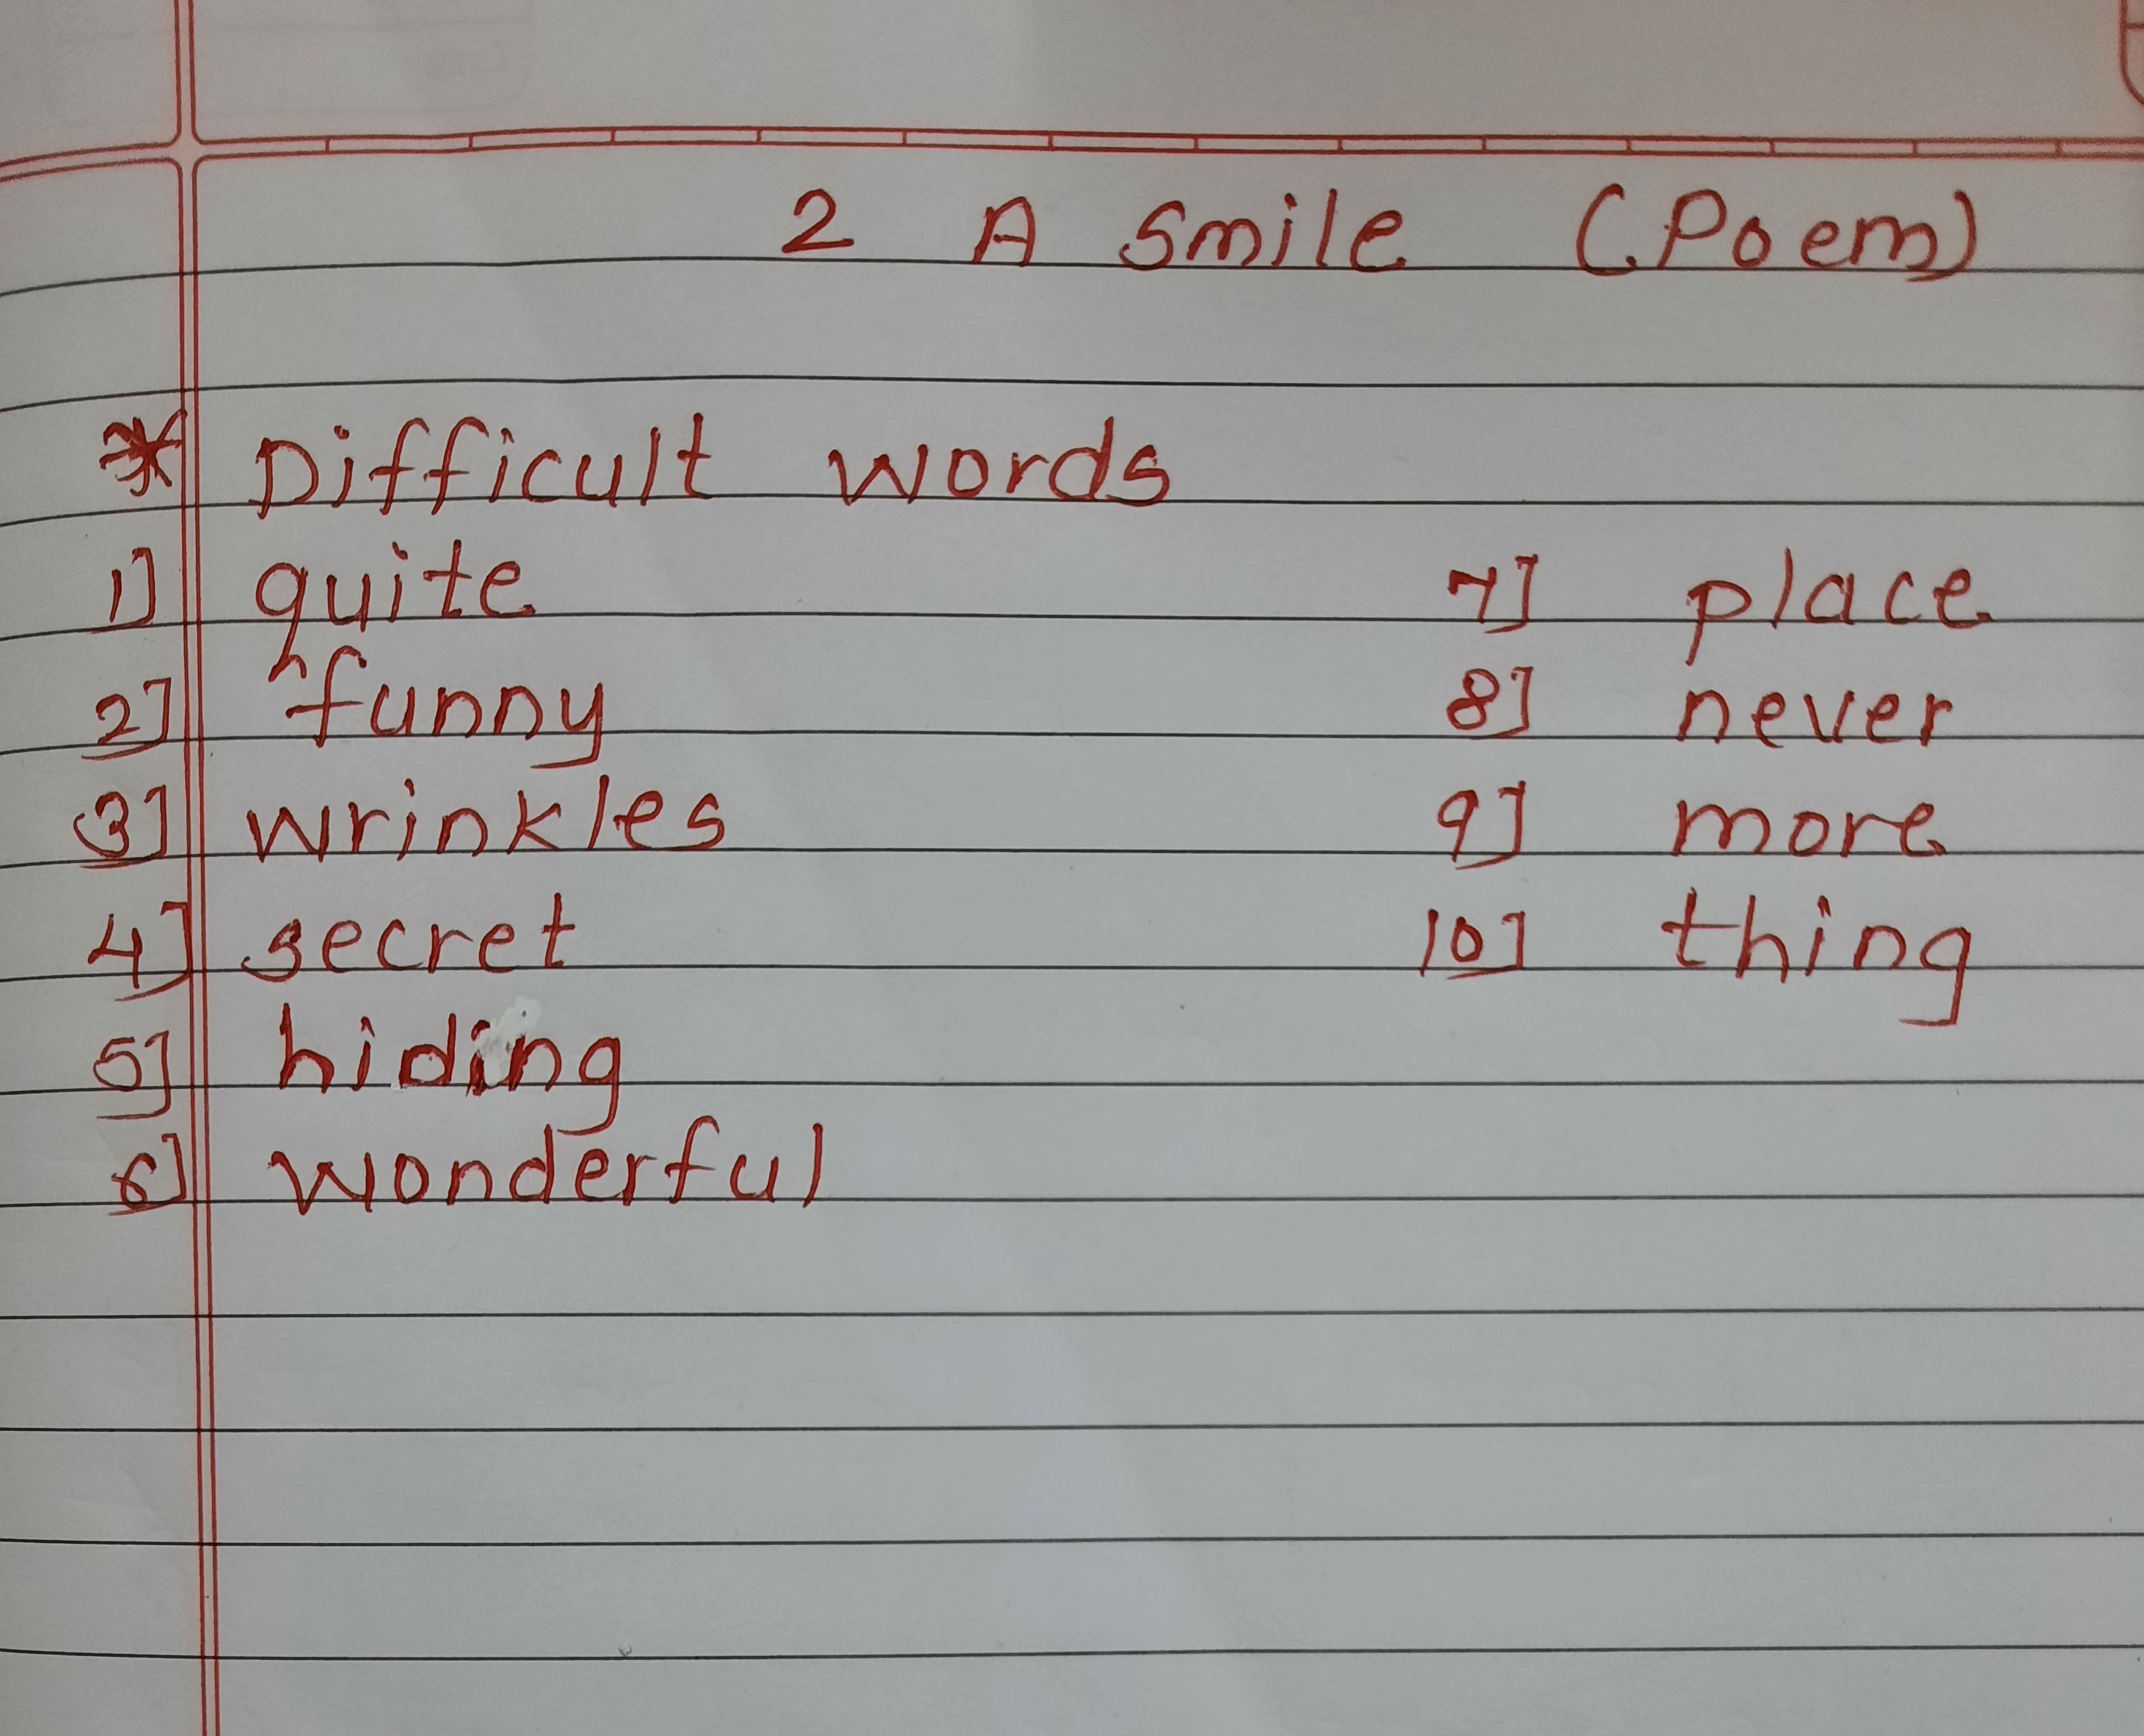 2 A Smile (Poem)
* Difficult words
1] quite
2] funny
3] wrinkles
4] secret
5] hiding
6] wonderful
7] place
8] never
9] more
10] thing